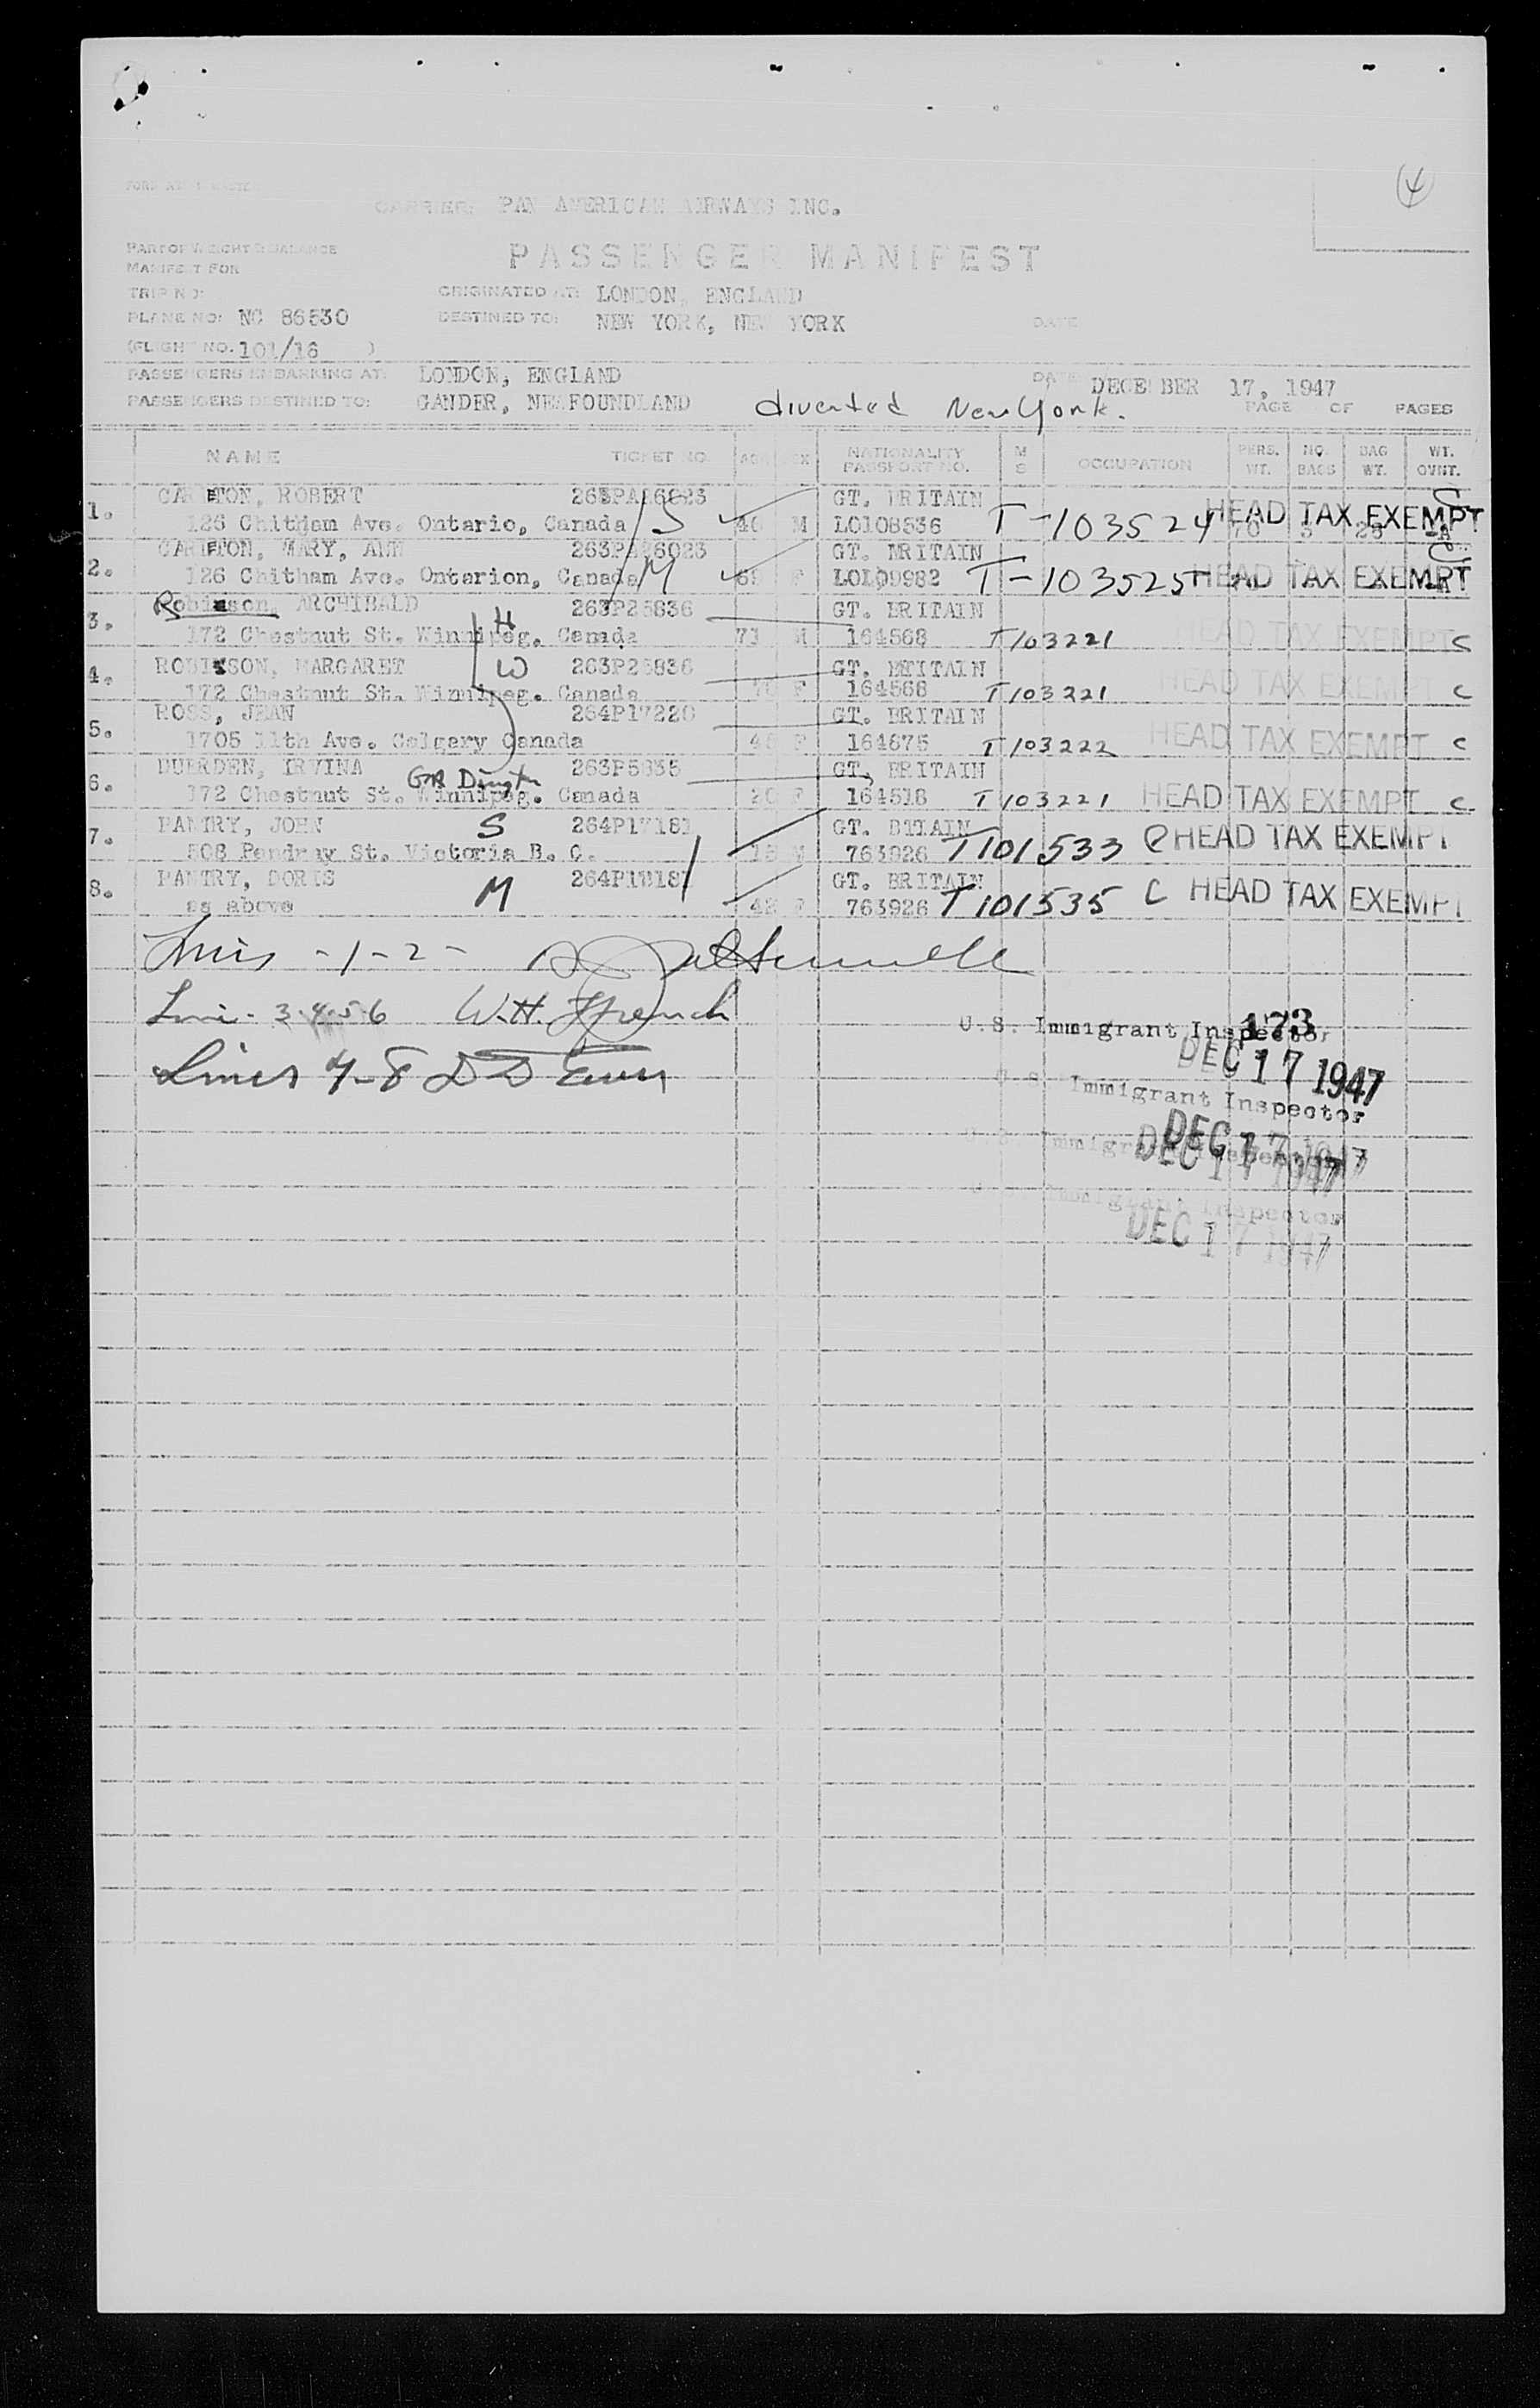 4
CARRIER: PAN AMERICAN AIRWAYS INC.
PART OF WEIGHT & BALANCE
MANIFEST FOR
PASSENGER MANIFEST
TRIP NO:
ORIGINATED AT: LONDON, ENGLAND
PLANE NO: NC 86530
DESTINED TO: NEW YORK, NEW YORK
DATE
(FLIGHT NO. 101/16 )
PASSENGERS EMBARKING AT: LONDON, ENGLAND
DATE DECEMBER 17, 1947
PASSENGERS DESTINED TO: GANDER, NEWFOUNDLAND diverted New York.
PAGE OF PAGES
NAME TICKET NO. AGE SEX NATIONALITY PASSPORT NO. M S OCCUPATION PERS. WT. NO. BAGS BAG WT. WT. OVNT.
1. ROBERT GT. BRITAIN
126 Chitham Ave. Ontario, Canada S M LO108536 T-103524 HEAD TAX EXEMPT C
2. MARY, ANN GT. BRITAIN
126 Chitham Ave. Ontarion, Canada M F T-103525 HEAD TAX EXEMPT C
3. Robinson, ARCHIBALD H GT. BRITAIN
172 Chestnut St. Winnipeg. Canada M 164568 T103221 HEAD TAX EXEMPT C
4. MARGARET W GT. BRITAIN
172 Chestnut St. Winnipeg. Canada F 164568 T103221 HEAD TAX EXEMPT C
5. ROSS, JEAN 264P17220 GT. BRITAIN
1705 11th Ave. Calgary Canada F 164675 T103222 HEAD TAX EXEMPT C
6. DUERDEN, IRVINA 263P5835 GT. BRITAIN
172 Chestnut St. Winnipeg. Canada F 164518 T103221 HEAD TAX EXEMPT C
7. PANTRY, JOHN S 264P17181 GT. BTTAIN
508 Pendray St. Victoria B. C. 763926 T101533 C HEAD TAX EXEMPT
8. PANTRY, DORIS M GT. BRITAIN
as above 42 F 763926 T101535 C HEAD TAX EXEMPT
Lines -1-2-
Line - 3.4.5 6 W.H. Ffrench
U.S. Immigrant Inspector
173
DEC 17 1947
Lines 7-8
U.S. Immigrant Inspector
DEC 17 1947
U.S. Immigrant Inspector
DEC 17 1947
U.S. Immigrant Inspector
DEC 17 1947